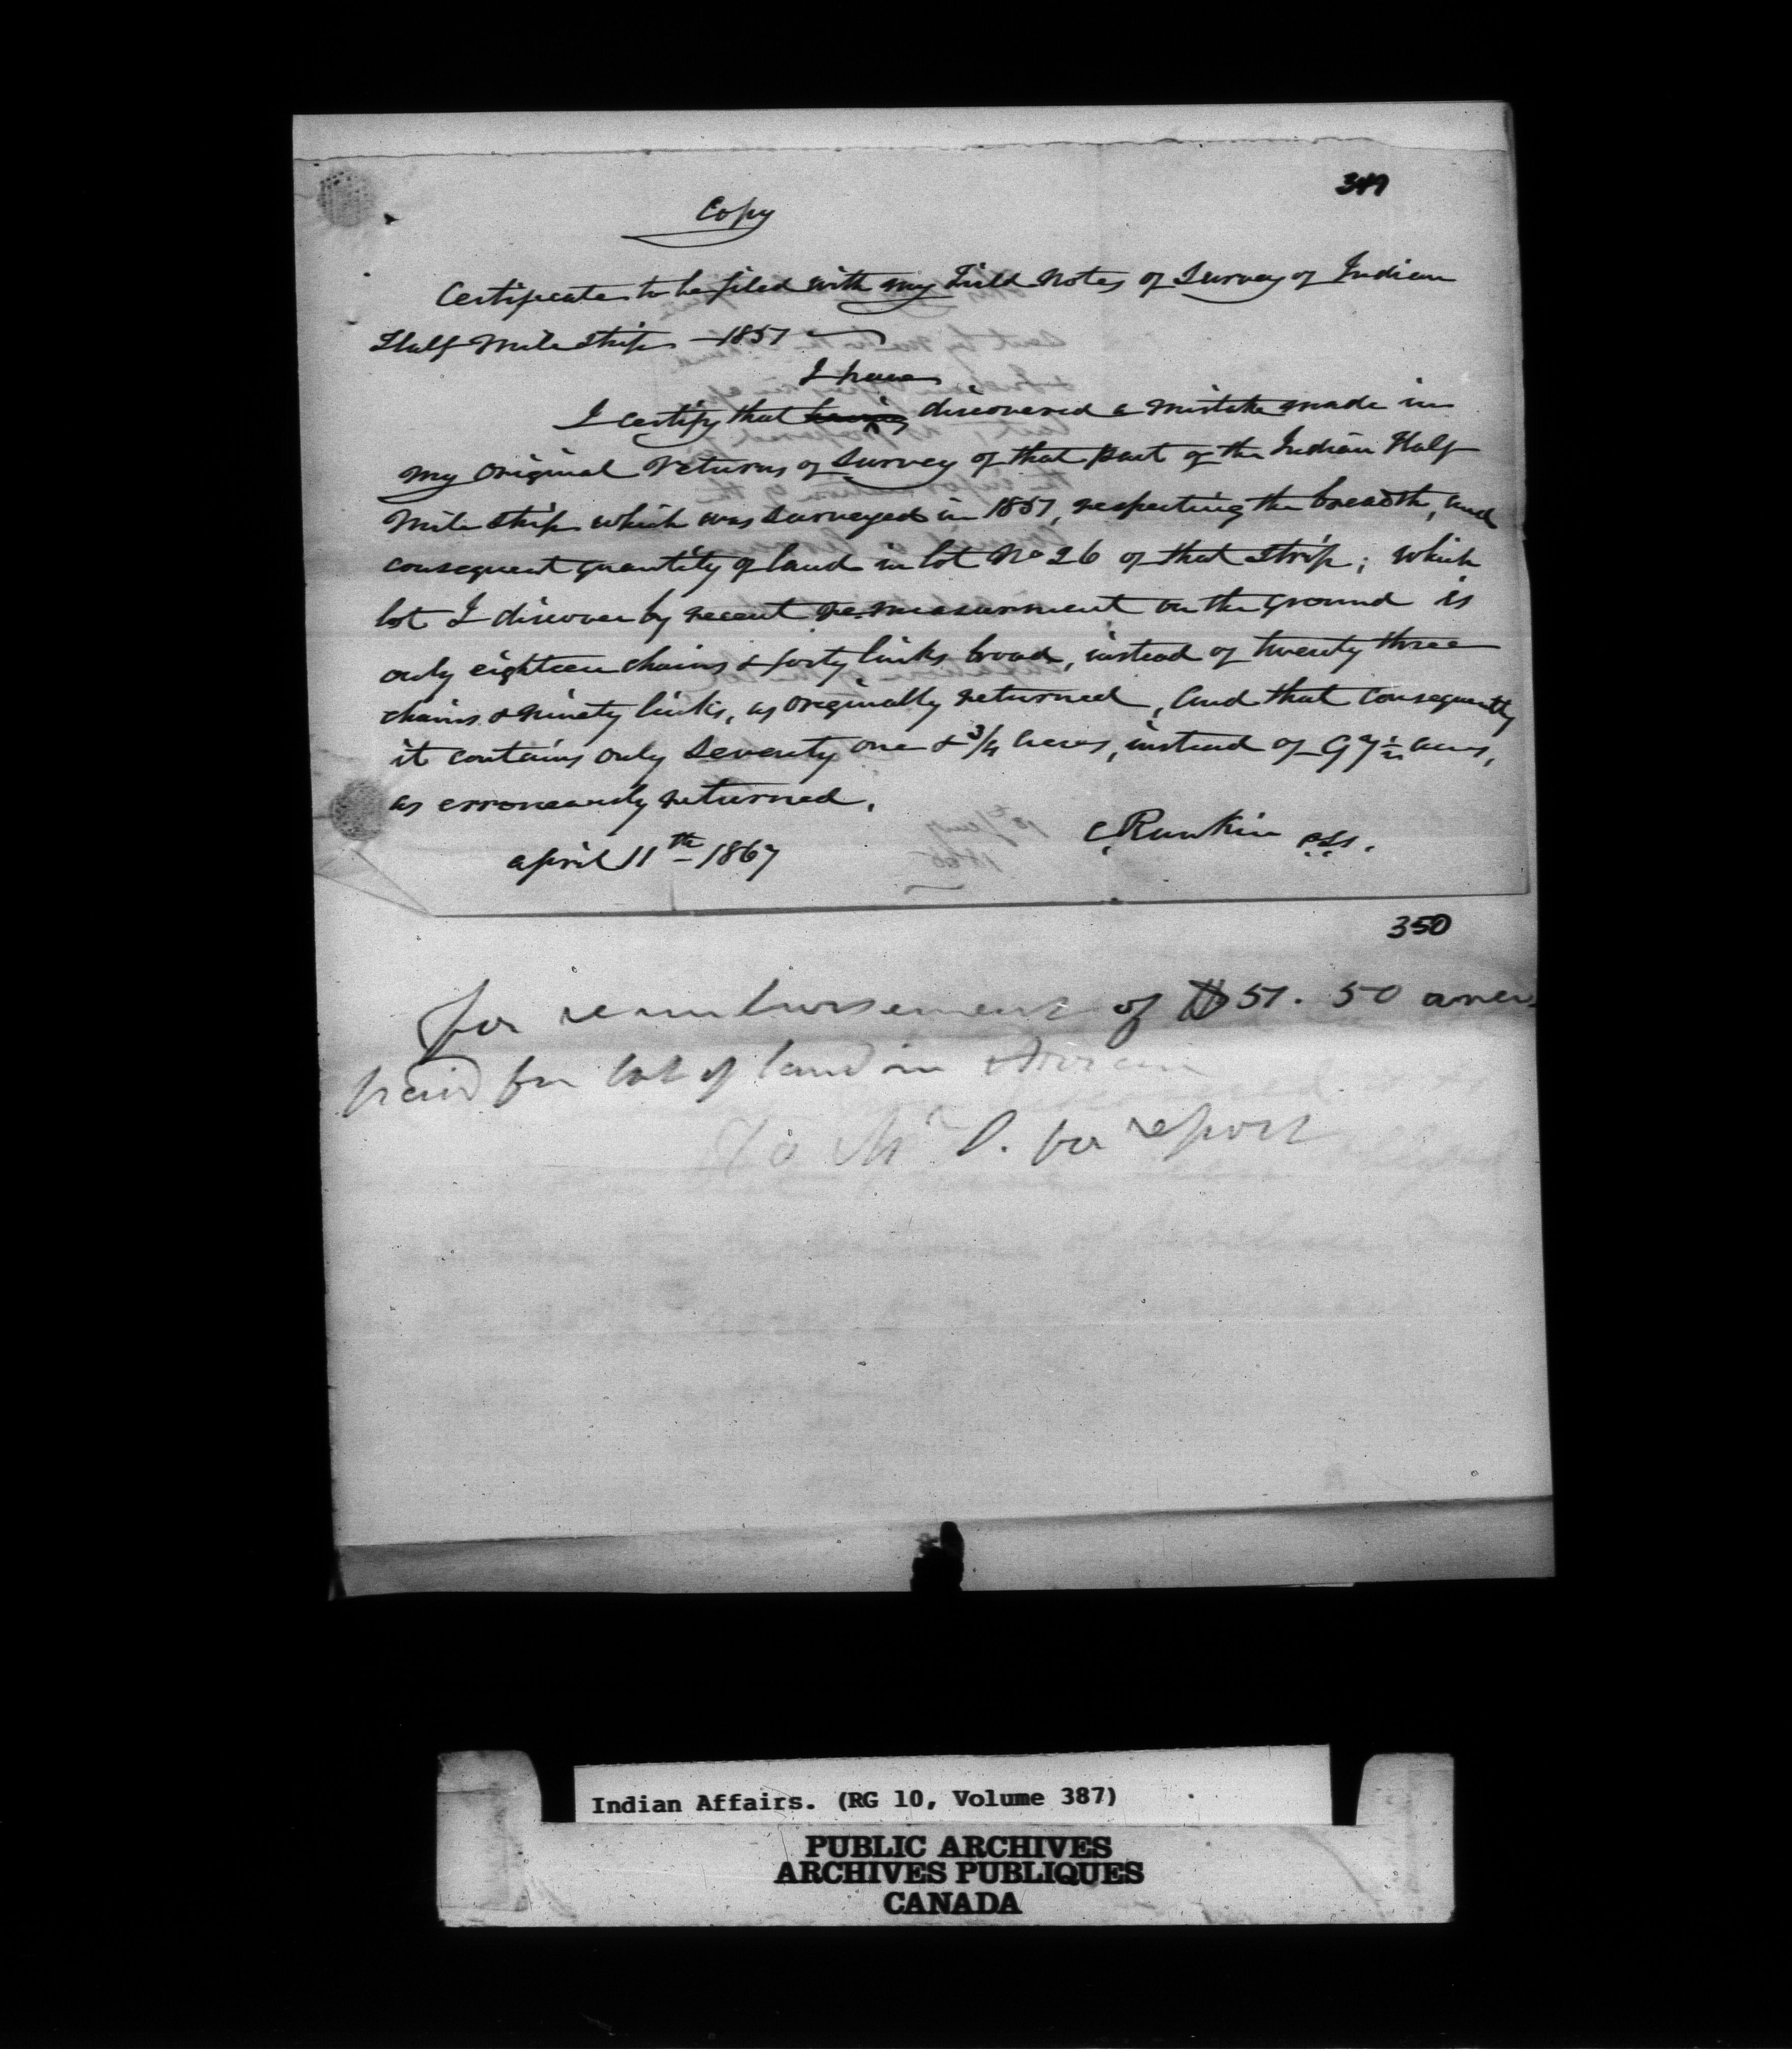 349
Copy
Certificate to be filed with my Field Notes of Survey of Indian
Half Mile Strip – 1857
I have
I certify that having discovered a mistake made in
my original returns of survey of that part of the Indian Half
Mile strip which was surveyed in 1857, respecting the breadth, and
consequent quantity of land in lot No 26 of that strip; which
lot I discover by recent re-measurment on the ground is
only eighteen chains & forty links broad, instead of twenty three
chains & ninety links, as originally returned, and that consequently
it contains only seventy one & 3/4 acres, instead of 97 1/2 acres,
as erroneously returned.
C Rankin P.L.S.
april 11th 1867
350
for reimbursement of $51.50 over
paid for lot of land in
To Mr for report
Indian Affairs. (RG 10, Volume 387)
PUBLIC ARCHIVES
ARCHIVES PUBLIQUES
CANADA